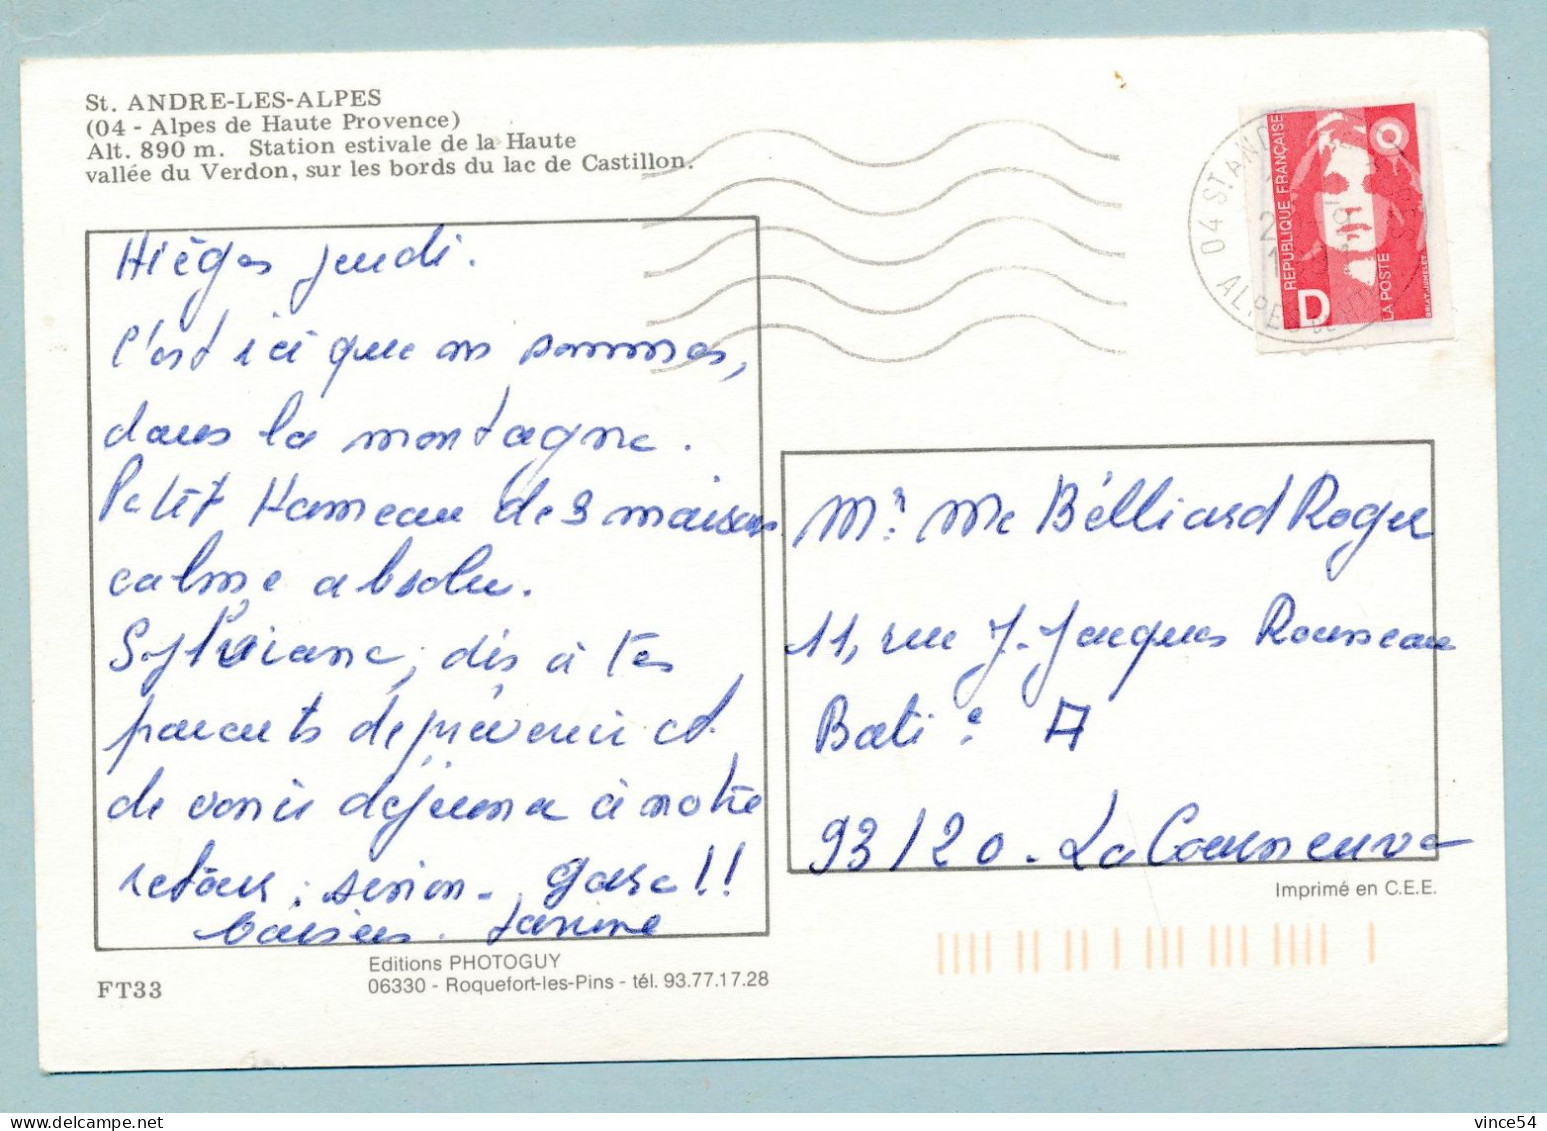 St. ANDRE-LES-ALPES
(04 - Alpes de Haute Provence)
Alt. 890 m. Station estivale de la Haute
vallée du Verdon, sur les bords du lac de Castillon.
Hièges jeudi.
C'est ici que ns sommes,
dans la montagne.
Petit Hameau de 3 maisons
calme absolu.
Sylviane, dis à tes
parents de prévenir et
de venir déjeuner à notre
retour, sinon. gare!!
baisers. Janine
Editions PHOTOGUY
06330 - Roquefort-les-Pins - tél. 93.77.17.28
FT33
04 ST AND
ALPE
REPUBLIQUE FRANÇAISE
D
LA POSTE
BRIAT-JUMELET
Mr Me Bélliard Roger
11, rue J. Jacques Rousseau
Bati. e A
93120. La Courneuve
Imprimé en C.E.E.
vince54